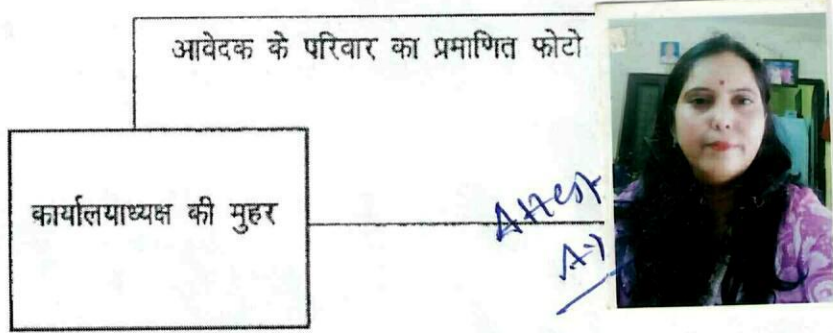 आवेदक के परिवार का प्रमाणित फोटो
कार्यालयाध्यक्ष की मुहर
Attest